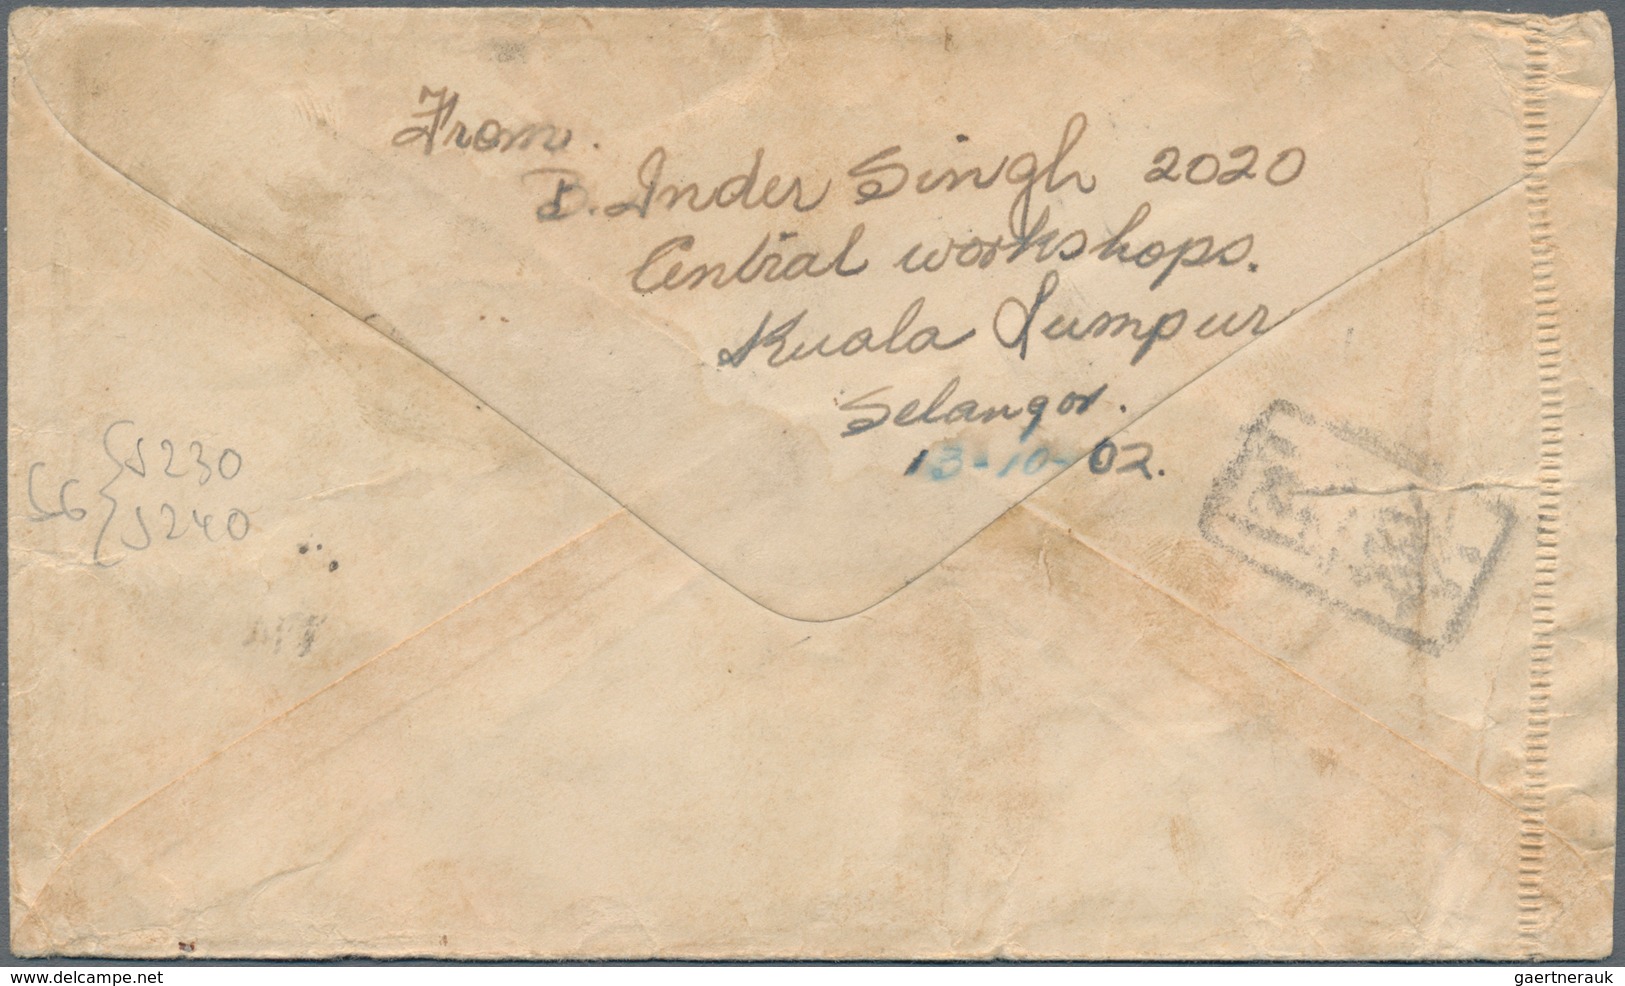 From.
B. Inder Singh 2020
Central workshops.
Kuala Lumpur
Selangor.
13-10-02.
SG { J230
J240
www.delcampe.net
gaertnerauk